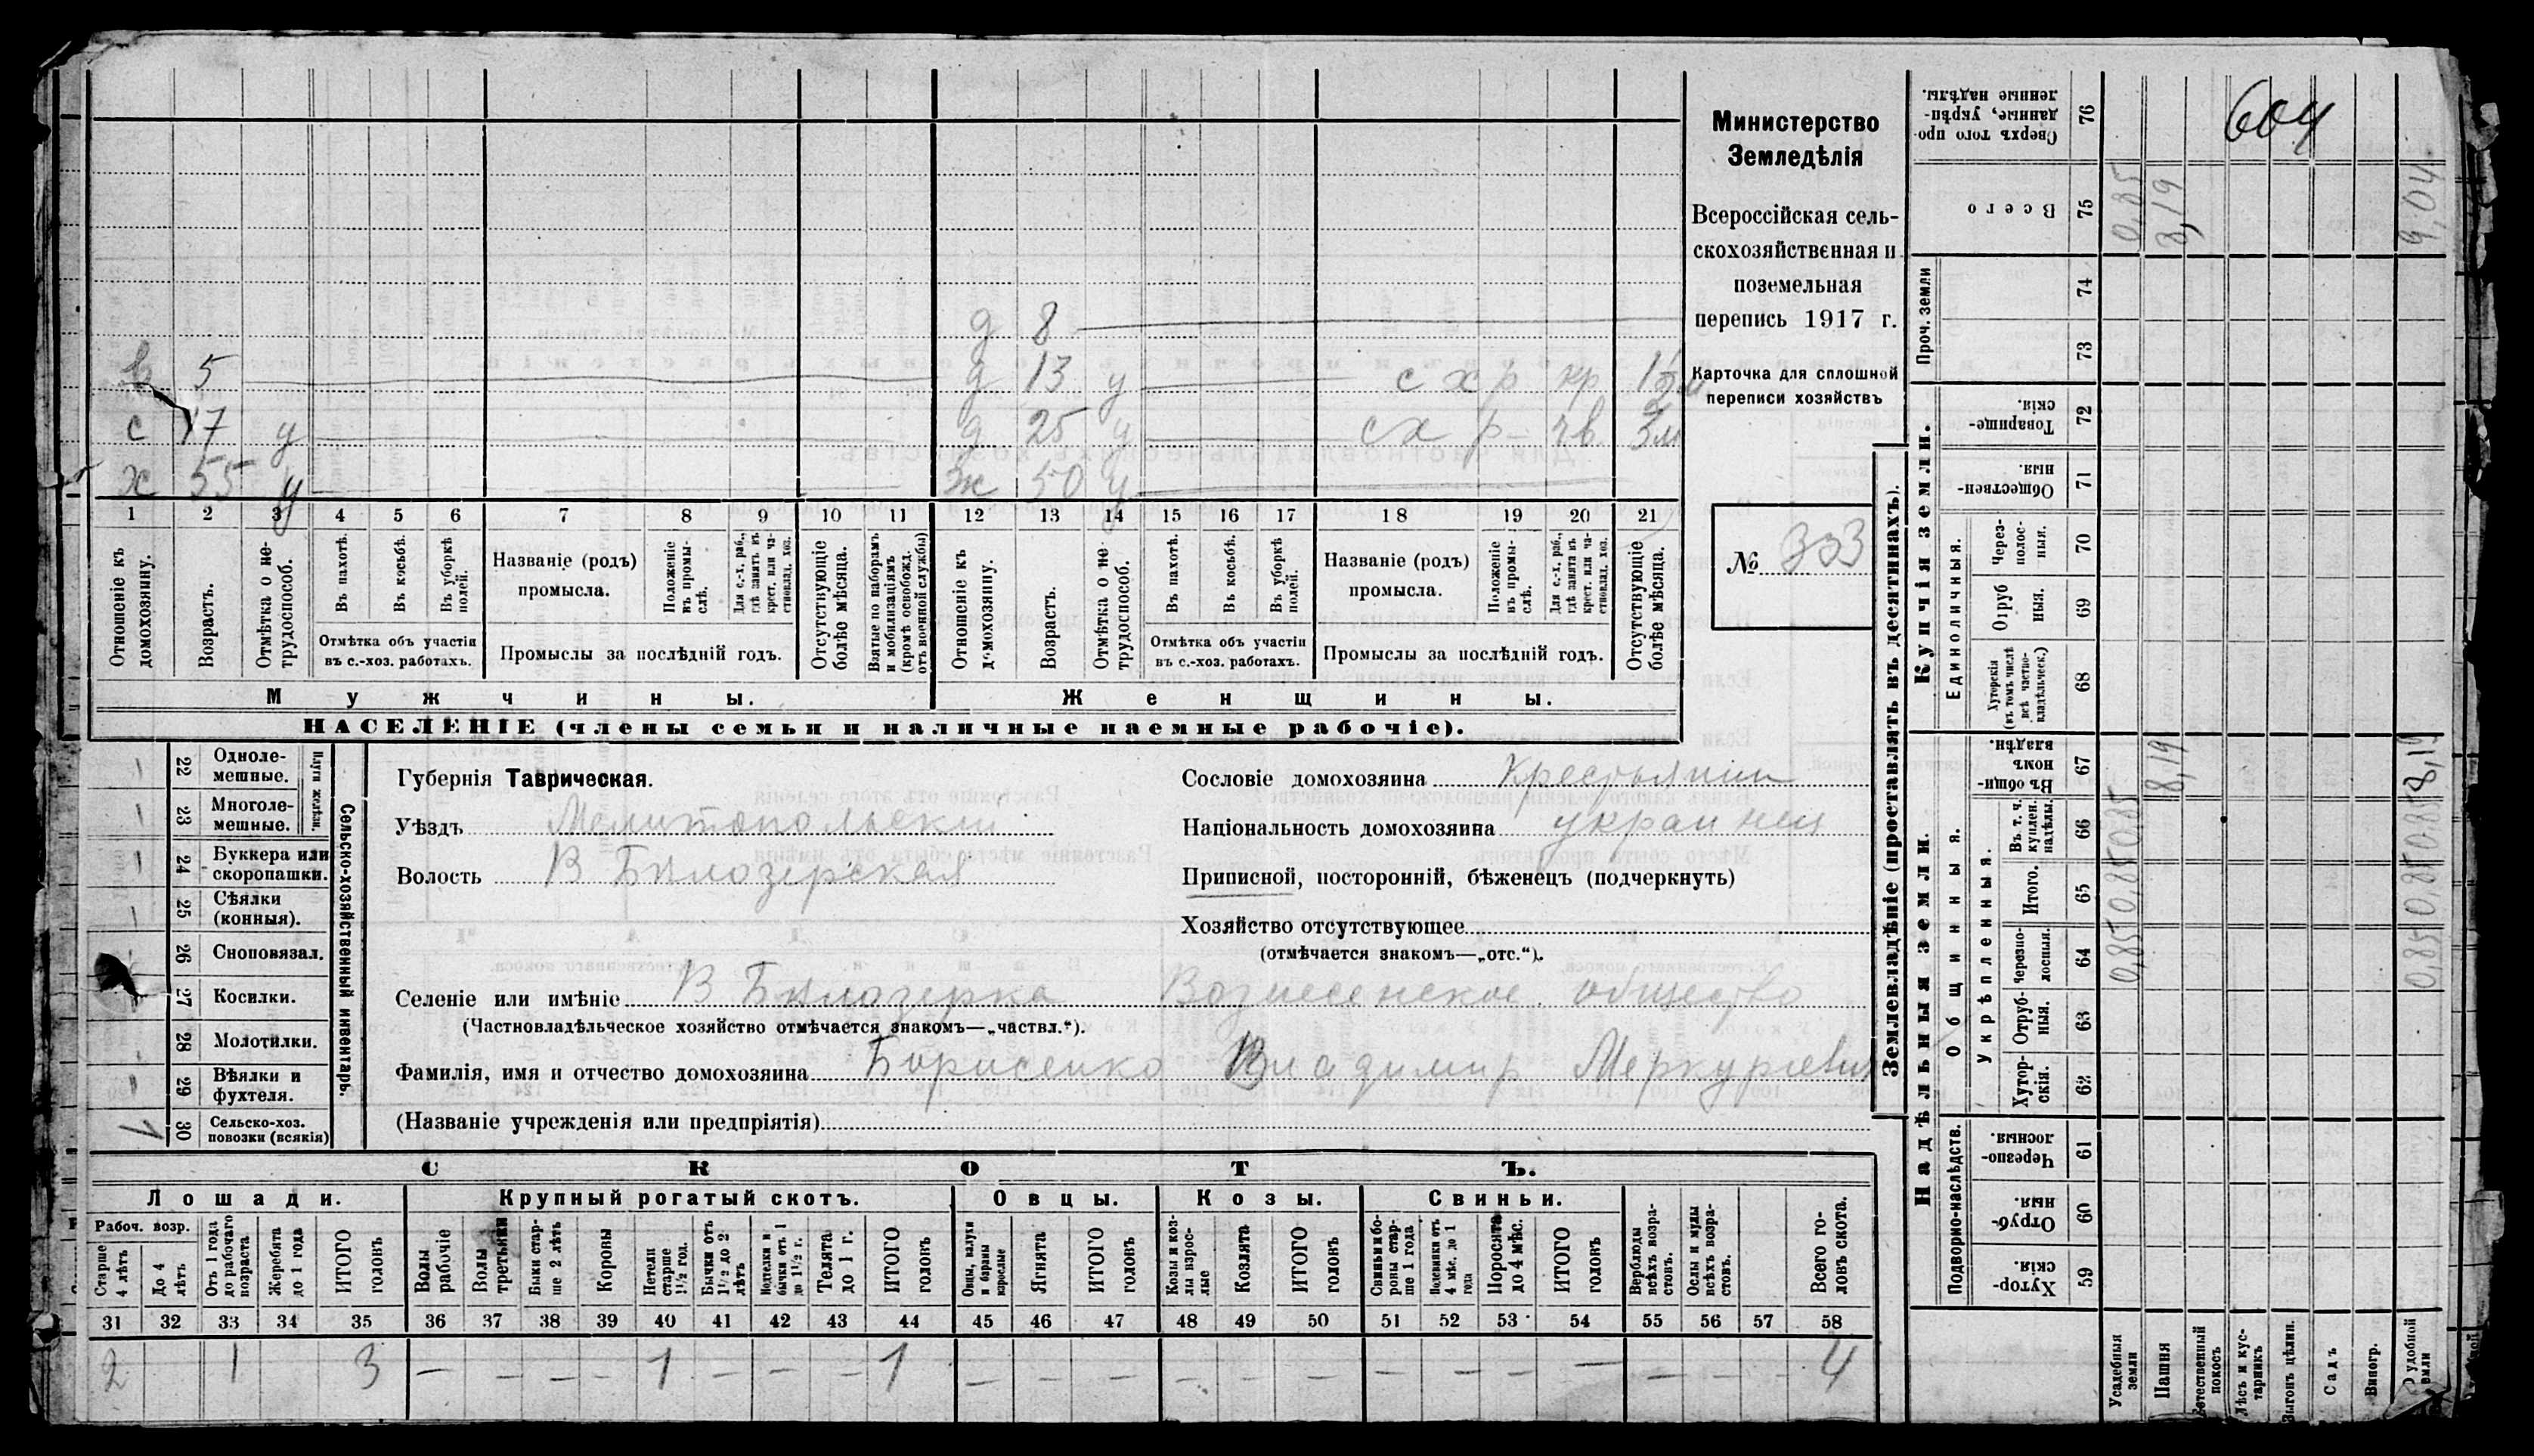 604
Министерство
Земледѣлія
Всероссійская сель-
скохозяйственная и
поземельная
перепись 1917 г.
Карточка для сплошной
переписи хозяйствъ
№ 353
д 8
5
д 13 у с х р кр
с 17 у
д 25 у с х р чв 3м
х 55 у
ж 50 у
1 2 3 4 5 6 7 8 9 10 11 12 13 14 15 16 17 18 19 20 21
Отношеніе къ домохозяину.
Возрастъ.
Отмѣтка о не-трудоспособ.
Въ пахотѣ.
Въ косьбѣ.
Въ уборкѣ полей.
Отмѣтка объ участіи
въ с.-хоз. работахъ.
Названіе (родъ)
промысла.
Положеніе въ промы-слѣ.
Для с.-х. раб., гдѣ занятъ въ крест. или ча-стновлад. хоз.
Промыслы за послѣдній годъ.
Отсутствующіе болѣе мѣсяца.
Взятые по наборамъ и мобилизаціямъ (кромѣ освобожд. отъ военной службы)
Отношеніе къ домохозяину.
Возрастъ.
Отмѣтка о не-трудоспособ.
Въ пахотѣ.
Въ косьбѣ.
Въ уборкѣ полей.
Отмѣтка объ участіи
въ с.-хоз. работахъ.
Названіе (родъ)
промысла.
Положеніе въ промы-слѣ.
Для с.-х. раб., гдѣ занята въ крест. или ча-стновлад. хоз.
Промыслы за послѣдній годъ.
Отсутствующіе болѣе мѣсяца.
Мужчины.
Женщины.
НАСЕЛЕНІЕ (члены семьи и наличные наемные рабочіе).
22 Одноле-мешные.
23 Многоле-мешные.
Плуги желѣзн.
24 Буккера или скоропашки.
25 Сѣялки (конныя).
26 Сноповязал.
27 Косилки.
28 Молотилки.
29 Вѣялки и фухтеля.
30 Сельско-хоз. повозки (всякія)
Сельско-хозяйственный инвентарь.
Губернія Таврическая.
Уѣздъ Мелитопольскій
Волость В Бѣлозерская
Сословіе домохозяина Крестьянин
Національность домохозяина украинец
Приписной, посторонній, бѣженецъ (подчеркнуть)
Хозяйство отсутствующее
(отмѣчается знакомъ—„отс.“).
Селеніе или имѣніе В Бѣлозерка Вознесенское общество
(Частновладѣльческое хозяйство отмѣчается знакомъ—„частвл.“).
Фамилія, имя и отчество домохозяина Борисенко Владимир Меркуріевич
(Названіе учрежденія или предпріятія)
СКОТЪ.
Лошади.
Крупный рогатый скотъ.
Овцы.
Козы.
Свиньи.
Рабоч. возр.
Старше 4 лѣтъ
До 4 лѣтъ
Отъ 1 года до рабочаго возраста
Жеребята до 1 года
ИТОГО головъ
Волы рабочіе
Волы третьяки
Быки стар-ше 2 лѣтъ
Коровы
Нетели старше 1½ год.
Бычки отъ 1½ до 2 лѣтъ
Подтелки и бычки отъ 1 до 1½ г.
Телята до 1 г.
ИТОГО головъ
Овцы, валухи и бараны взрослые
Ягнята
ИТОГО головъ
Козы и коз-лы взрос-лые
Козлята
ИТОГО головъ
Свиньи и бо-роны стар-ше 1 года
Подсвинки отъ 4 мѣс. до 1 года
Поросята до 4 мѣс.
ИТОГО головъ
Верблюды всѣхъ возра-стовъ.
Ослы и мулы всѣхъ возра-стовъ.
Всего го-ловъ скота.
31 32 33 34 35 36 37 38 39 40 41 42 43 44 45 46 47 48 49 50 51 52 53 54 55 56 57 58
2 1 3 — — — — 1 — — — 1 — — — — — — — — — — — — 4
Землевладѣніе (проставлять въ десятинахъ).
Надѣльныя земли.
Купчія земли.
Проч. земли
Подворно-наслѣдств.
Общинныя.
Укрѣпленныя.
Единоличныя.
59 Хутор-скія.
60 Отруб-ныя.
61 Черезпо-лосныя.
62 Хутор-скія.
63 Отруб-ныя.
64 Черезпо-лосныя.
65 Итого.
66 Въ т. ч. куплен. надѣлы.
67 Въ общи-номъ владѣн.
68 Хуторскія (въ томъ числѣ всѣ частно-владѣльческ.)
69 Отруб ныя.
70 Через-полос-ныя.
71 Обществен-ныя.
72 Товарище-скія.
73
74
75 Всего
76 Сверхъ того про-данные, укрѣп-ленные надѣлы.
Усадебныя земли 0,85 0,85 0,85 0,85
Пашня 8,19 8,19
Естественный покосъ
Лѣсъ и кус-тарникъ
Выгонъ цѣлин.
Садъ
Виногр.
удобной земли 0,85 0,85 0,85 8,19 9,04